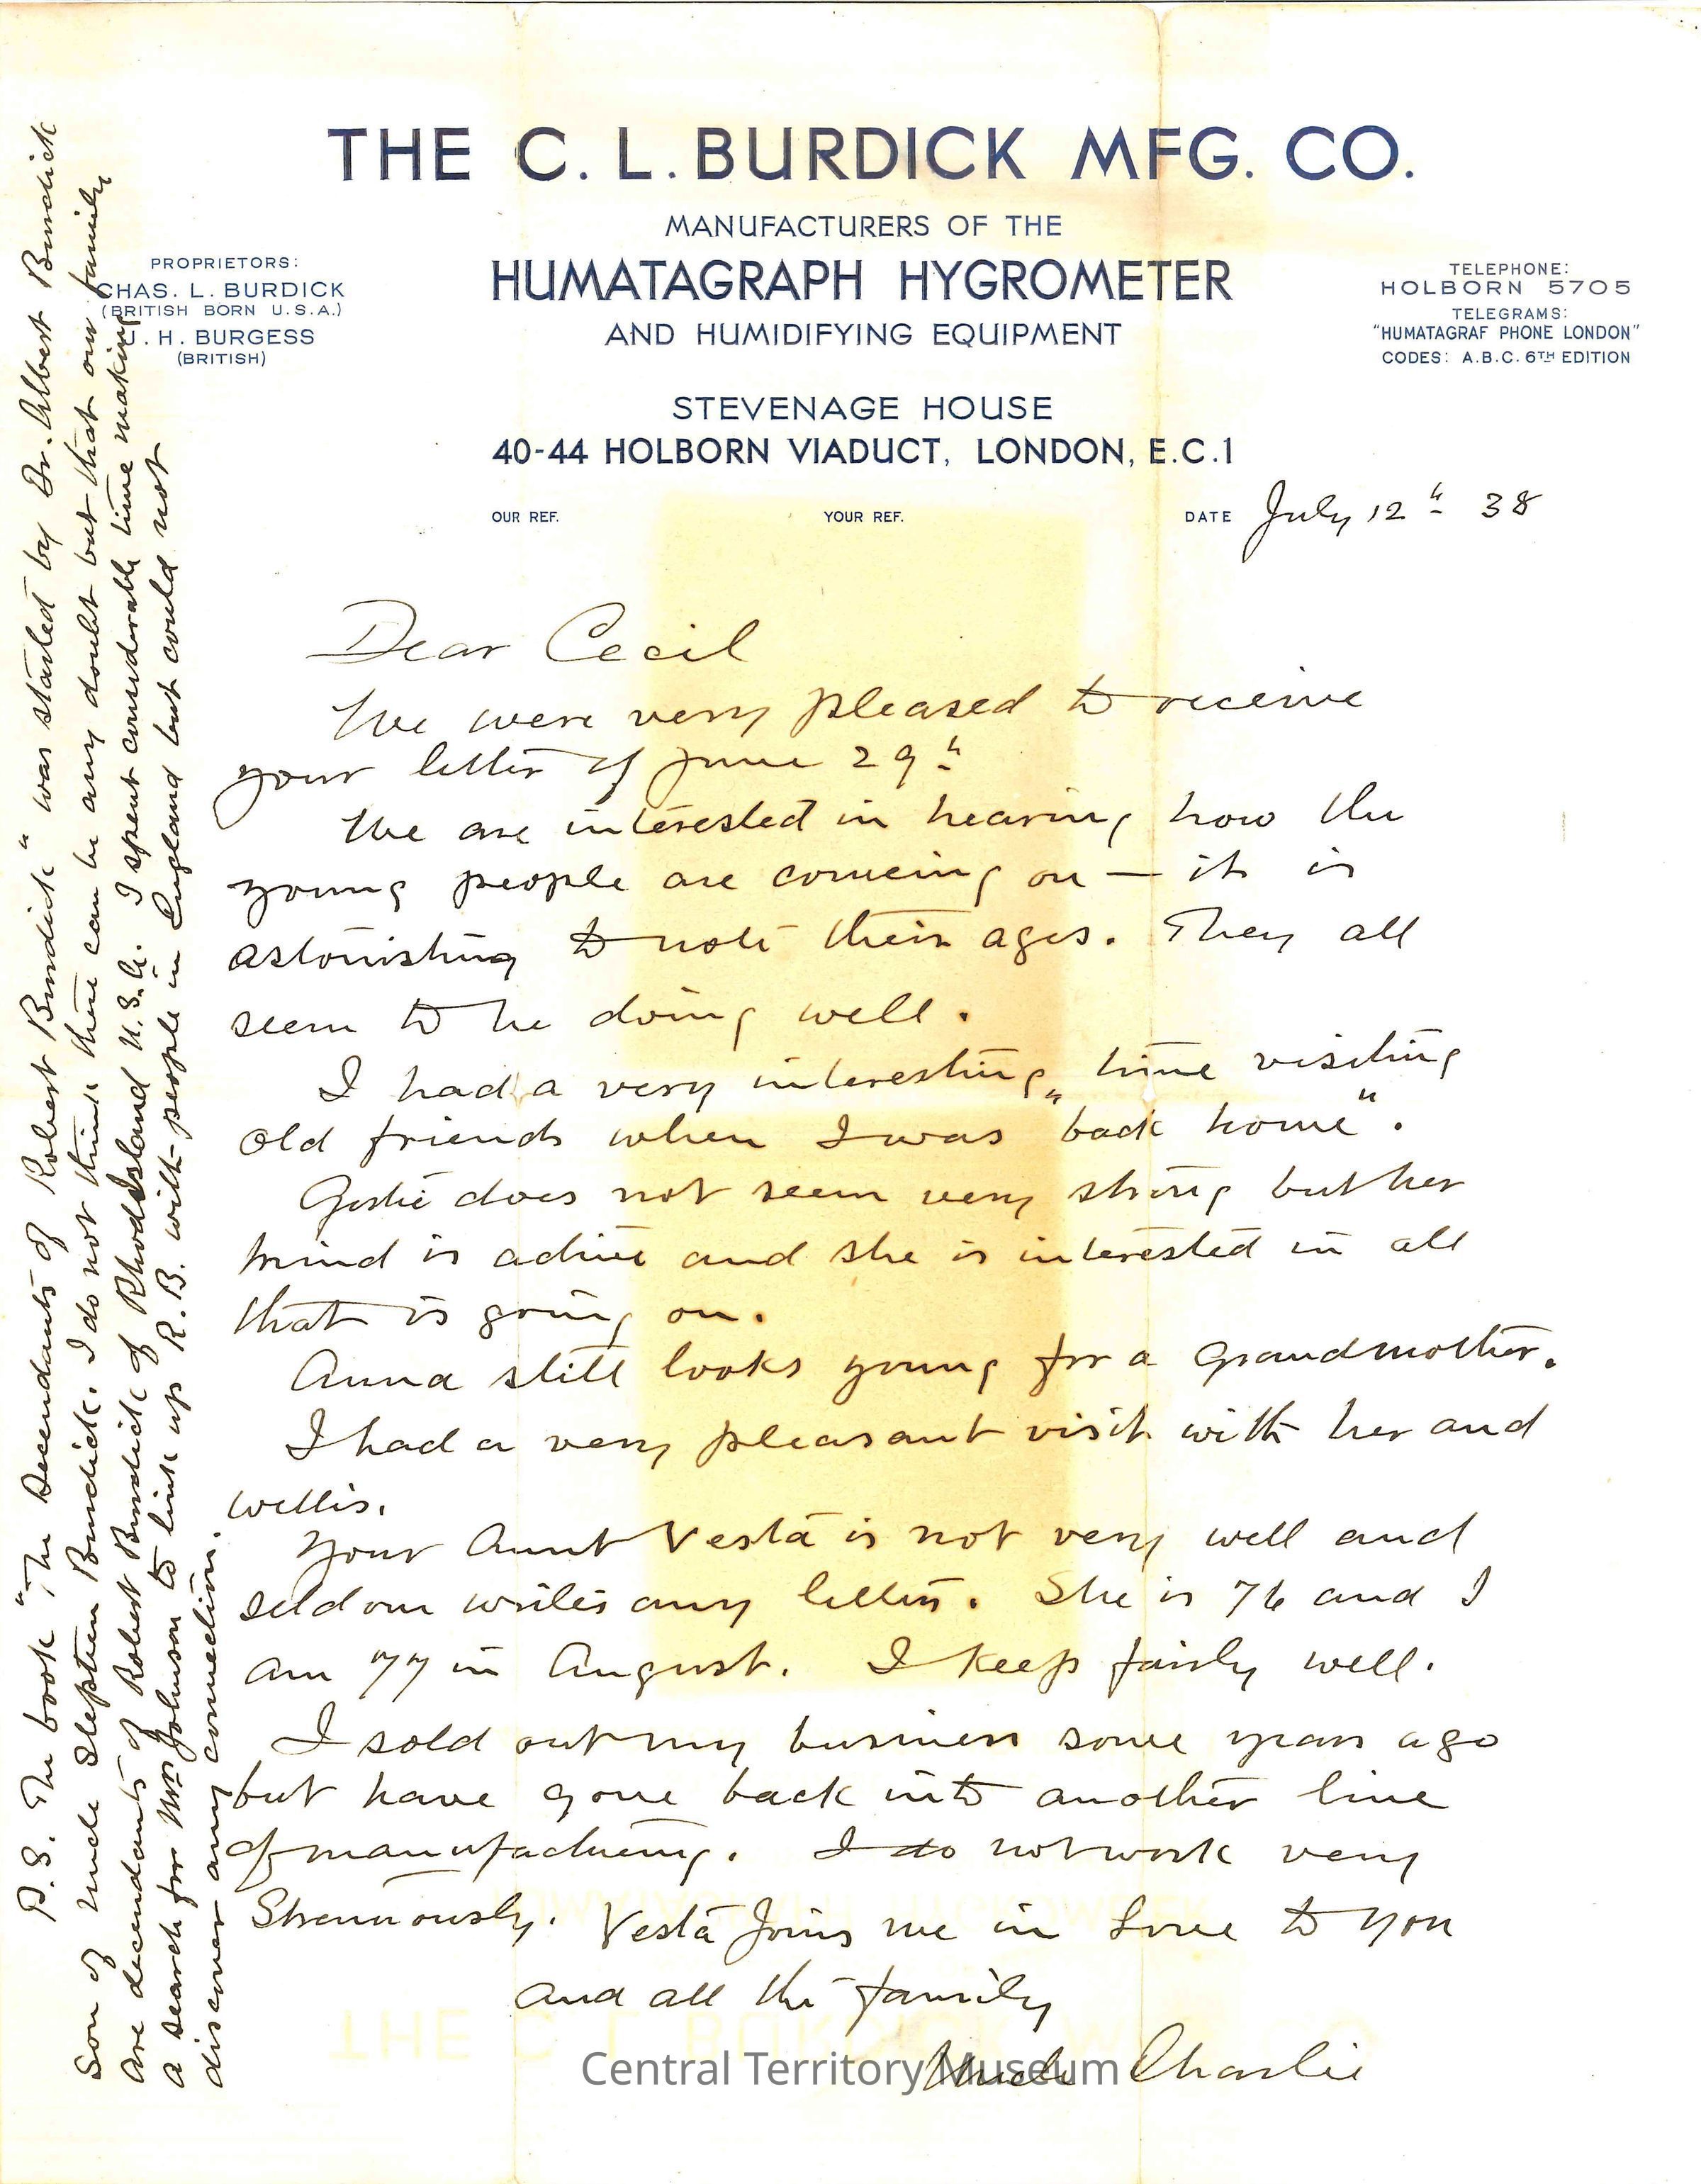 THE C. L. BURDICK MFG. CO.
MANUFACTURERS OF THE
HUMATAGRAPH HYGROMETER
AND HUMIDIFYING EQUIPMENT
PROPRIETORS:
CHAS. L. BURDICK
(BRITISH BORN U.S.A.)
. H. BURGESS
(BRITISH)
TELEPHONE:
HOLBORN 5705
TELEGRAMS:
"HUMATAGRAF PHONE LONDON"
CODES: A.B.C. 6TH EDITION
STEVENAGE HOUSE
40-44 HOLBORN VIADUCT, LONDON, E.C.1
OUR REF. YOUR REF. DATE July 12th 38
Dear Cecil
We were very pleased to receive
your letter of June 29th
We are interested in hearing how the
young people are comeing on — it is
astonishing to note their ages. They all
seem to be doing well.
I had a very interesting time visiting
old friends when I was "back home".
does not seem very strong but her
mind is active and she is interested in all
that is going on.
Anna still looks young for a grandmother.
I had a very pleasant visit with her and
Willis.
Your Aunt Vesta is not very well and
seldom writes any letters. She is 76 and I
am 77 in August. I keep fairly well.
I sold out my business some years ago
but have gone back into another line
of manufactueing. I do not work very
Strenuously. Vesta Joins me in Love to you
and all the family
Uncle Charlie
P.S. The book "The Decendants of Robert Burdick" was started by Dr. Albert Burdick
Son of Uncle Stephen Burdick. I do not think there can be any doubt but that our family
are decendants of Robert Burdick of Rhode Island U.S.A. I spent considerable time making
a search for Mrs Johnson to link up R.B. with people in England but could not
discover any connection.
Central Territory Museum